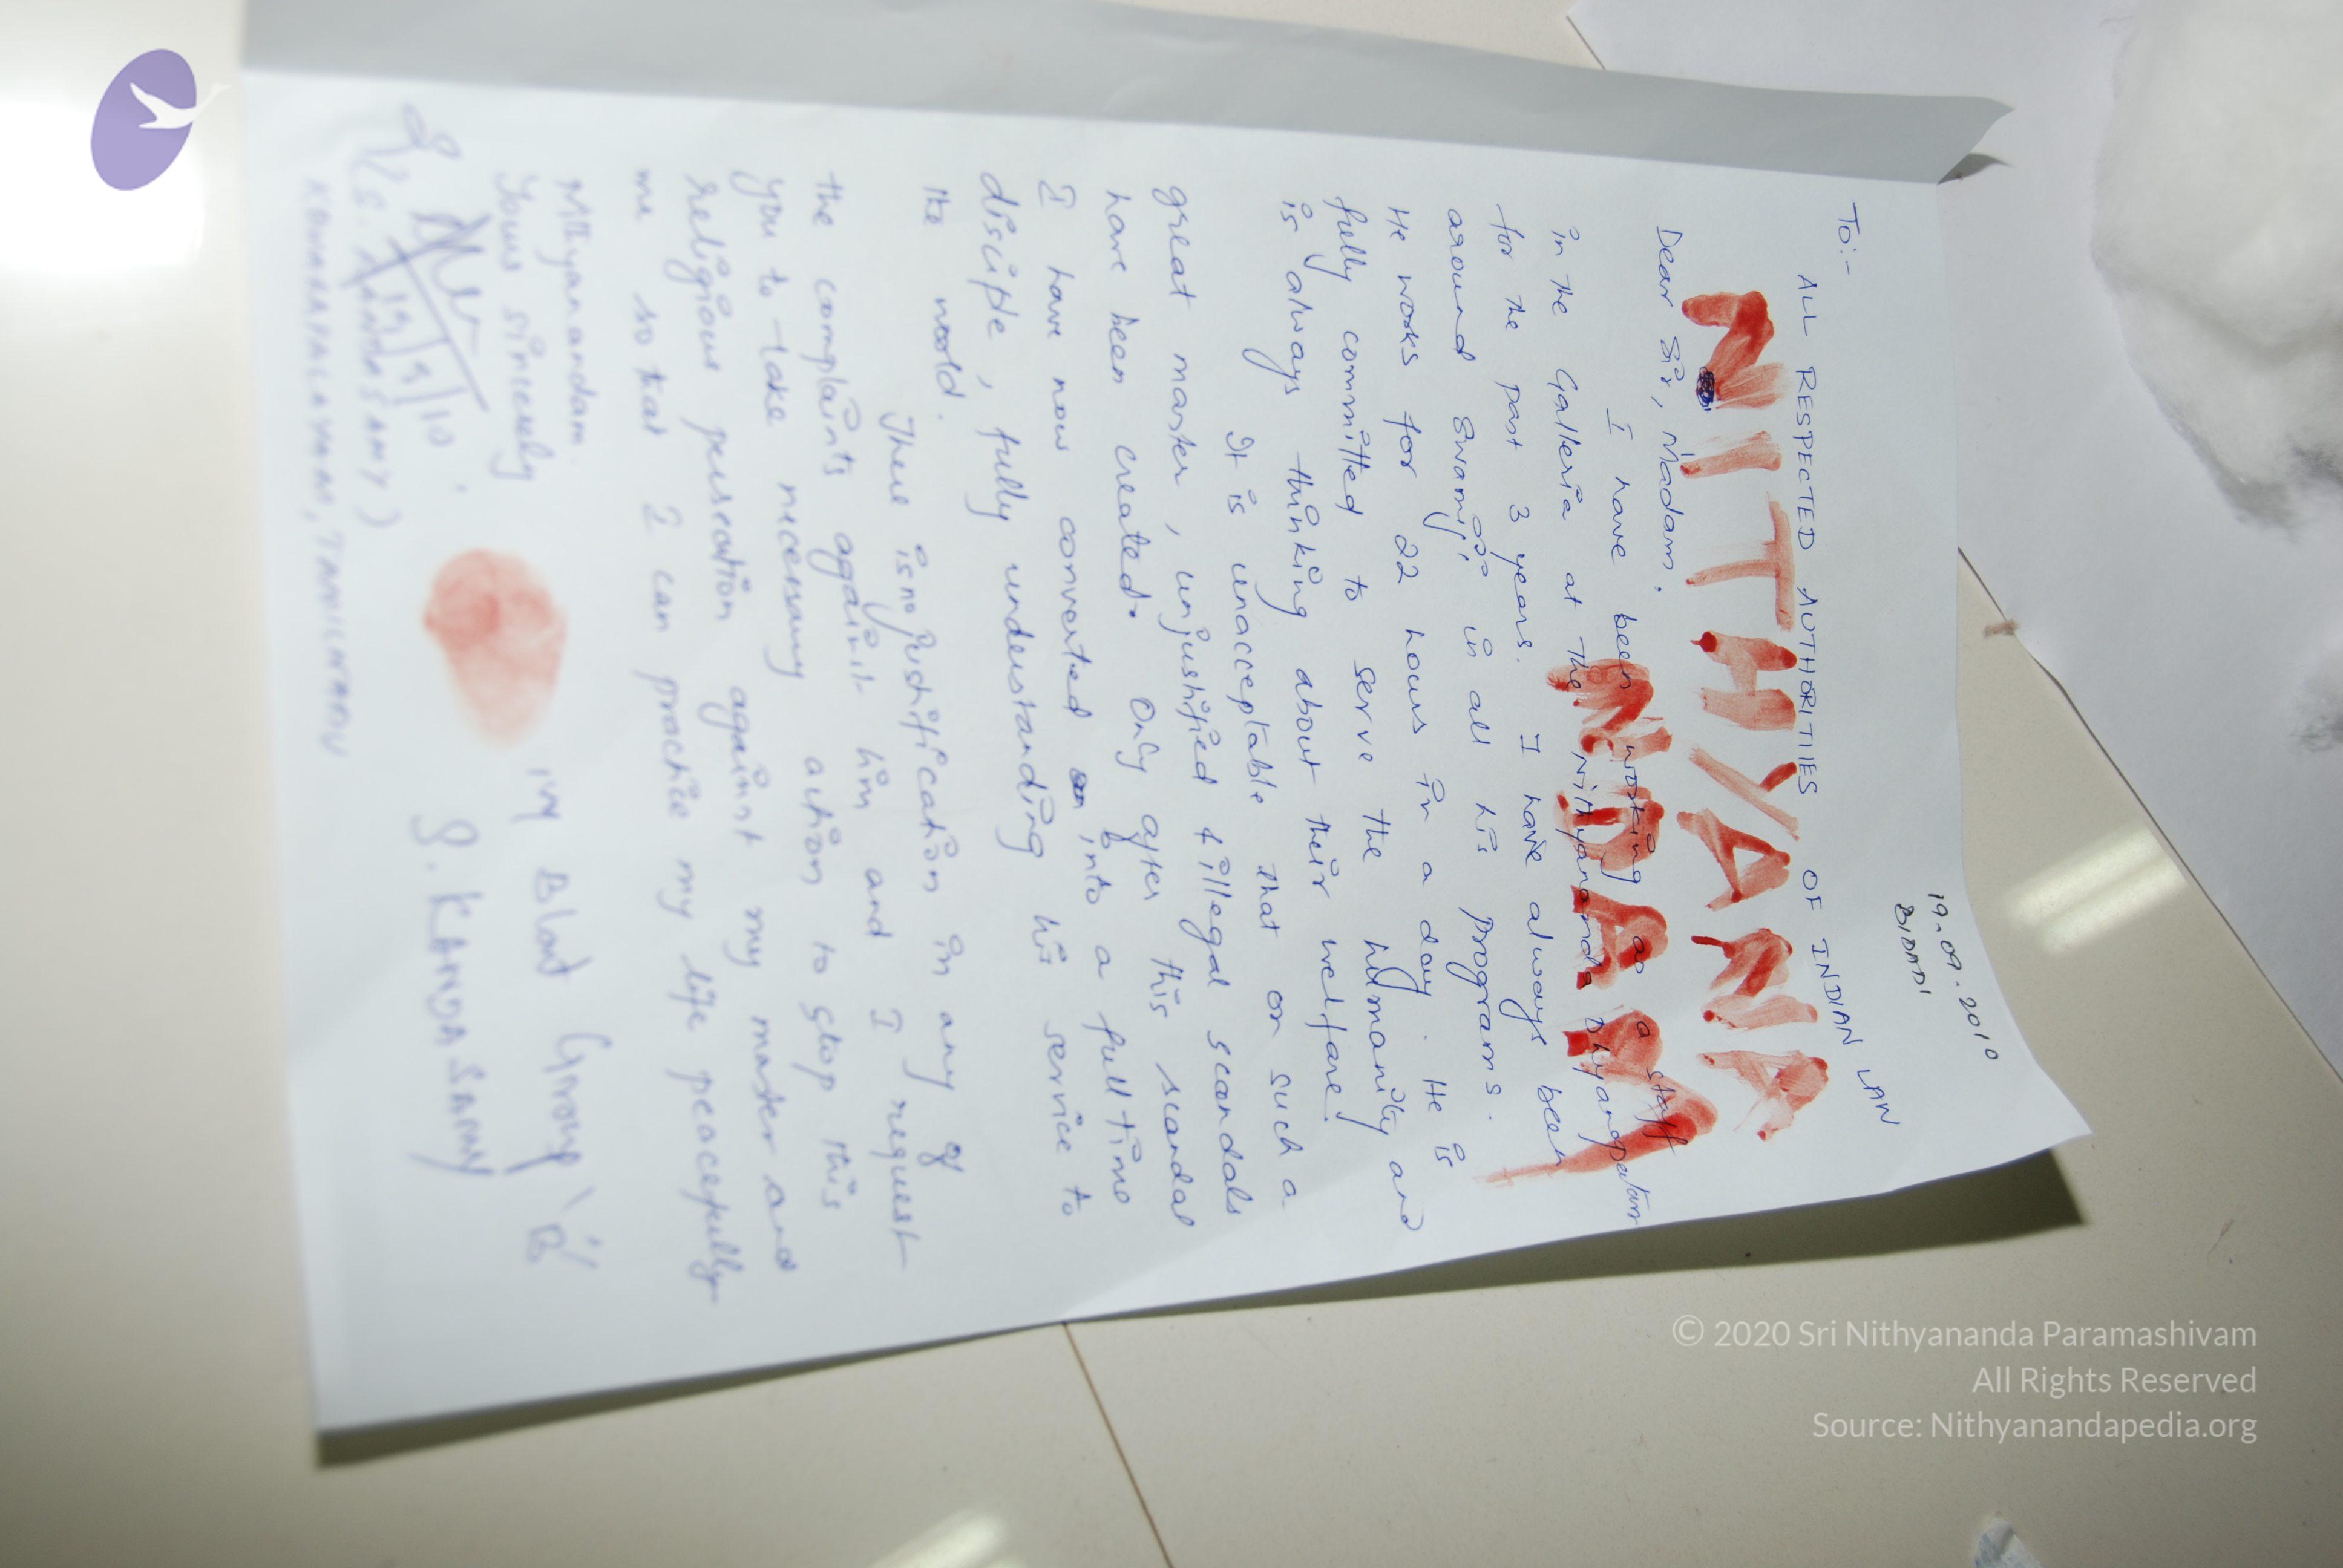 19-09-2010
BIDADI
To:-
ALL RESPECTED AUTHORITIES OF INDIAN LAW
NITHYANA
NDAM
Dear Sir, Madam.
I have been working as a staff
in the Galleria at the Nithyananda Dhyanapeetam
for the past 3 years. I have always been
around Swamiji in all his programs.
He works for 22 hours in a day. He is
fully committed to serve the humanity and
is always thinking about their welfare!
It is unacceptable that on such a
great master, unjustified & illegal scandals
have been created. Only after this scandal
I have now converted into a full time
disciple, fully understanding his service to
the world.
There is no justification in any of
the complaints against him and I request
you to take necessary action to stop this
religious persecution against my master and
me so that I can practice my life peacefully
Nithyanandam.
Yours sincerely
19/9/10
(S. KANDASAMY)
KOMARAPALAYAM, TAMILNADU
My Blood Group 'B'
S. KANDASAMY
© 2020 Sri Nithyananda Paramashivam
All Rights Reserved
Source: Nithyanandapedia.org